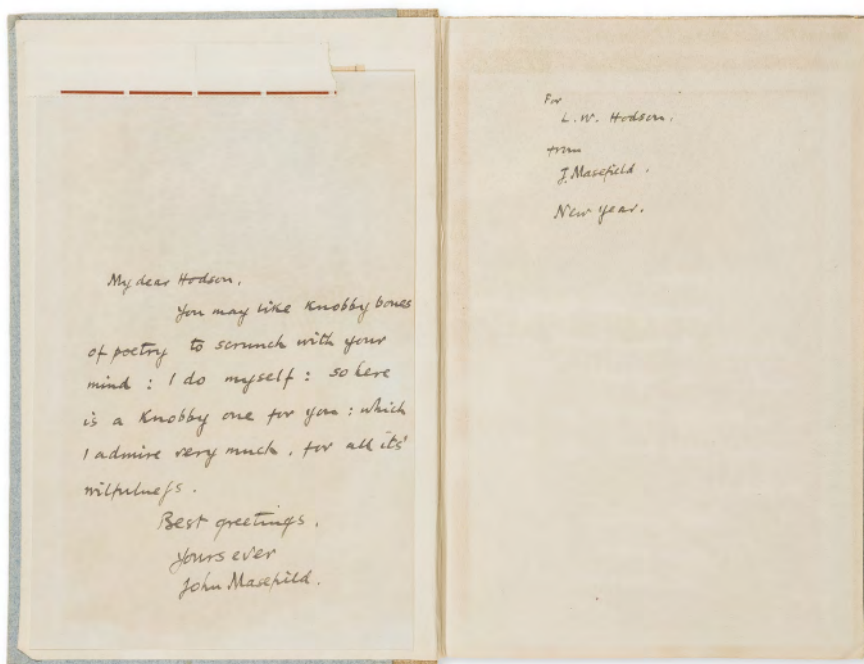 My dear Hodson,
You may like Knobby bones
of poetry to scrunch with your
mind : I do myself : so here
is a Knobby one for you : which
I admire very much, for all its'
wilfulness.
Best greetings.
Yours ever
John Masefield.
For
L. W. Hodson.
from
J. Masefield.
New Year.